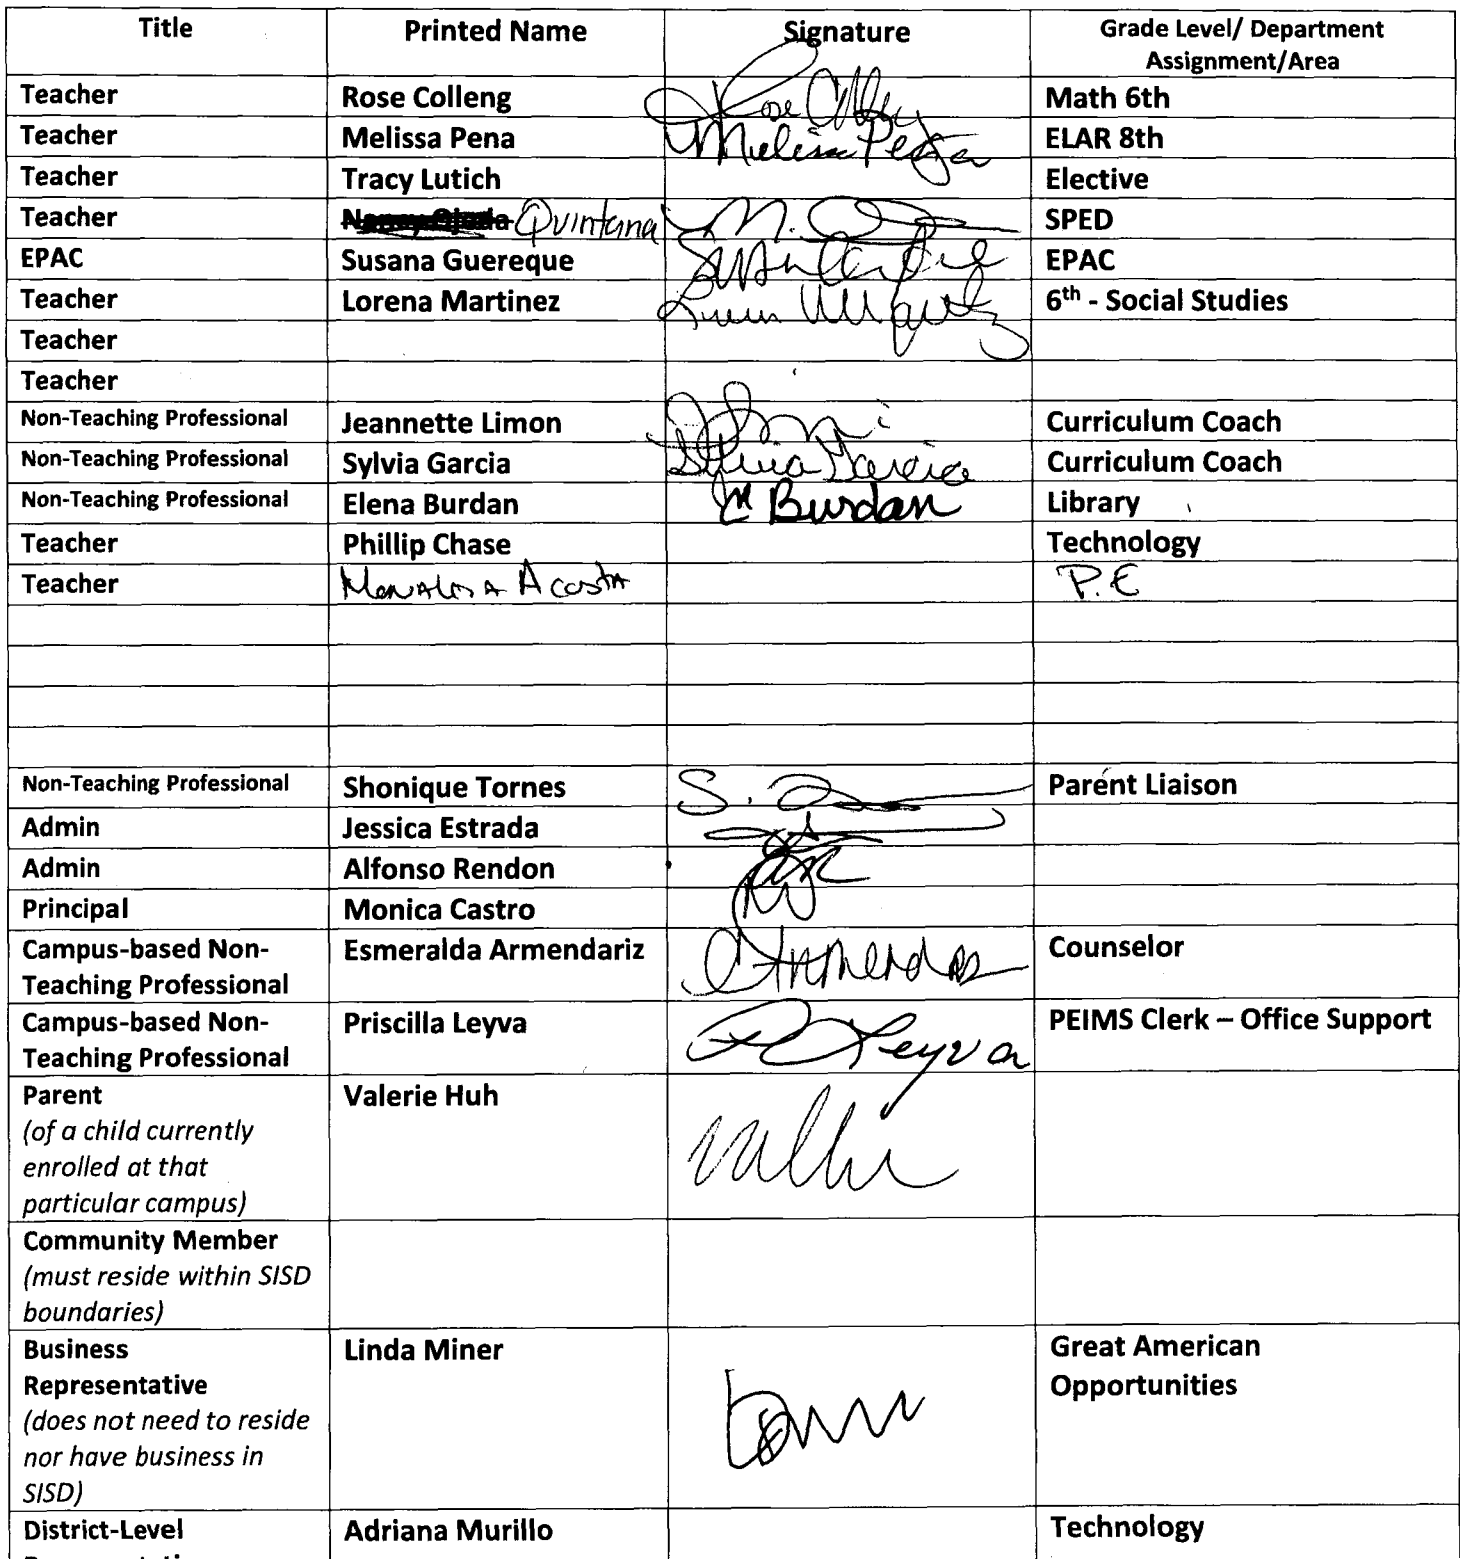 Title Printed Name Signature Grade Level/ Department
Assignment/Area
Teacher Rose Colleng Rose Math 6th
Teacher Melissa Pena Melissa Pena ELAR 8th
Teacher Tracy Lutich Elective
Teacher Quintana N. SPED
EPAC Susana Guereque EPAC
Teacher Lorena Martinez 6th - Social Studies
Teacher
Teacher
Non-Teaching Professional Jeannette Limon Curriculum Coach
Non-Teaching Professional Sylvia Garcia Sylvia Garcia Curriculum Coach
Non-Teaching Professional Elena Burdan Burdan Library
Teacher Phillip Chase Technology
Teacher Monalisa Acosta P.E
Non-Teaching Professional Shonique Tornes S. Parent Liaison
Admin Jessica Estrada
Admin Alfonso Rendon
Principal Monica Castro
Campus-based Non- Esmeralda Armendariz Counselor
Teaching Professional
Campus-based Non- Priscilla Leyva P Leyva PEIMS Clerk – Office Support
Teaching Professional
Parent Valerie Huh
(of a child currently
enrolled at that
particular campus)
Community Member
(must reside within SISD
boundaries)
Business Linda Miner Great American
Representative Opportunities
(does not need to reside
nor have business in
SISD)
District-Level Adriana Murillo Technology